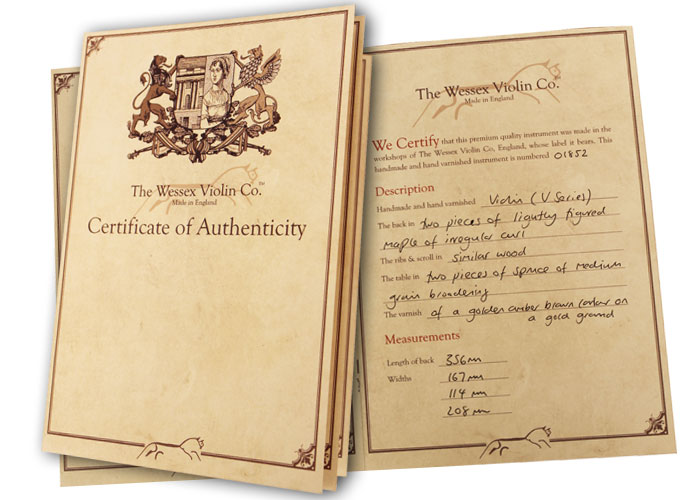 The Wessex Violin Co.™
Made in England
Certificate of Authenticity
The Wessex Violin Co.
Made in England
We Certify that this premium quality instrument was made in the
workshops of The Wessex Violin Co, England, whose label it bears. This
handmade and hand varnished instrument is numbered 01852
Description
Handmade and hand varnished Violin (V Series)
The back in two pieces of lightly figured
maple of irregular curl
The ribs & scroll in similar wood
The table in two pieces of spruce of medium
grain broadening
The varnish of a golden amber brown colour on
a gold ground
Measurements
Length of back 356mm
Widths 167mm
114mm
208mm